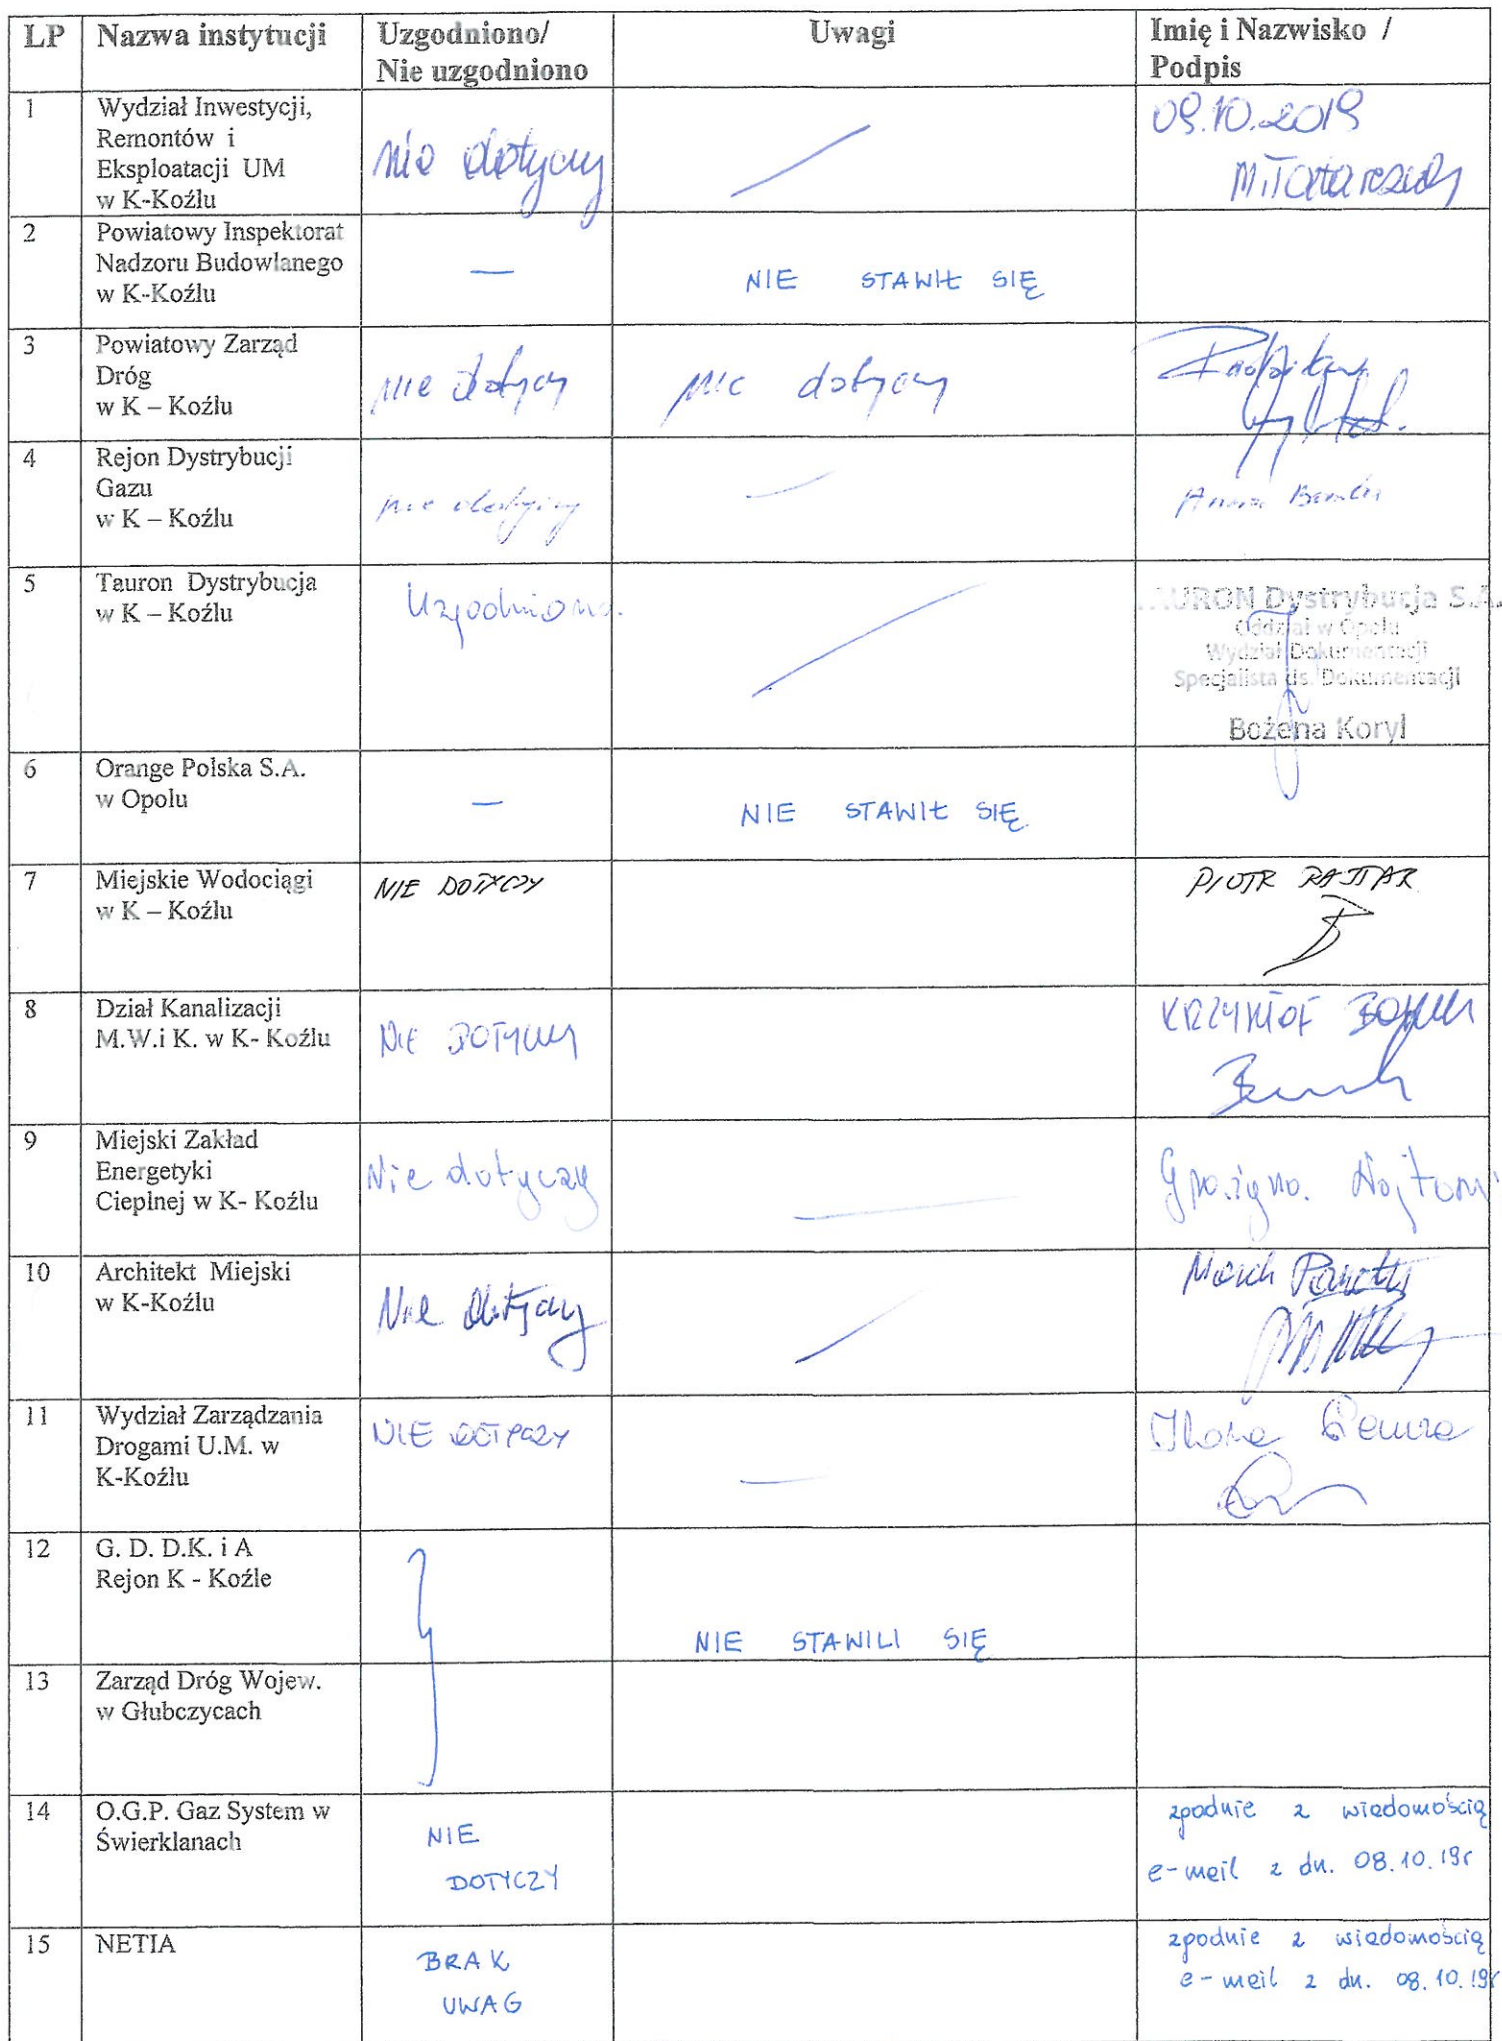 LP Nazwa instytucji Uzgodniono/ Uwagi Imię i Nazwisko /
Nie uzgodniono Podpis
1 Wydział Inwestycji,
Remontów i
Eksploatacji UM
w K-Koźlu
nie dotyczy
09.10.2019
2 Powiatowy Inspektorat
Nadzoru Budowlanego
w K-Koźlu
—
NIE STAWIŁ SIĘ
3 Powiatowy Zarząd
Dróg
w K – Koźlu
nie dotyczy
nie dotyczy
4 Rejon Dystrybucji
Gazu
w K – Koźlu
nie dotyczy
Anna
5 Tauron Dystrybucja
w K – Koźlu
Uzgodniono.
TAURON Dystrybucja S.A.
Oddział w Opolu
Wydział Dokumentacji
Specjalista ds. Dokumentacji
Bożena Koryl
6 Orange Polska S.A.
w Opolu
—
NIE STAWIŁ SIĘ
7 Miejskie Wodociągi
w K – Koźlu
NIE DOTYCZY
PIOTR
8 Dział Kanalizacji
M.W.i K. w K- Koźlu
NIE DOTYCZY
KRZYSZTOF
9 Miejski Zakład
Energetyki
Cieplnej w K- Koźlu
Nie dotyczy
Grażyna
10 Architekt Miejski
w K-Koźlu
Nie dotyczy
11 Wydział Zarządzania
Drogami U.M. w
K-Koźlu
NIE DOTYCZY
Ilona
12 G. D. D.K. i A
Rejon K - Koźle
NIE STAWILI SIĘ
13 Zarząd Dróg Wojew.
w Głubczycach
14 O.G.P. Gaz System w
Świerklanach
NIE
DOTYCZY
zgodnie z wiadomością
e-meil z dn. 08.10.19r
15 NETIA
BRAK
UWAG
zgodnie z wiadomością
e-meil z dn. 08.10.19r